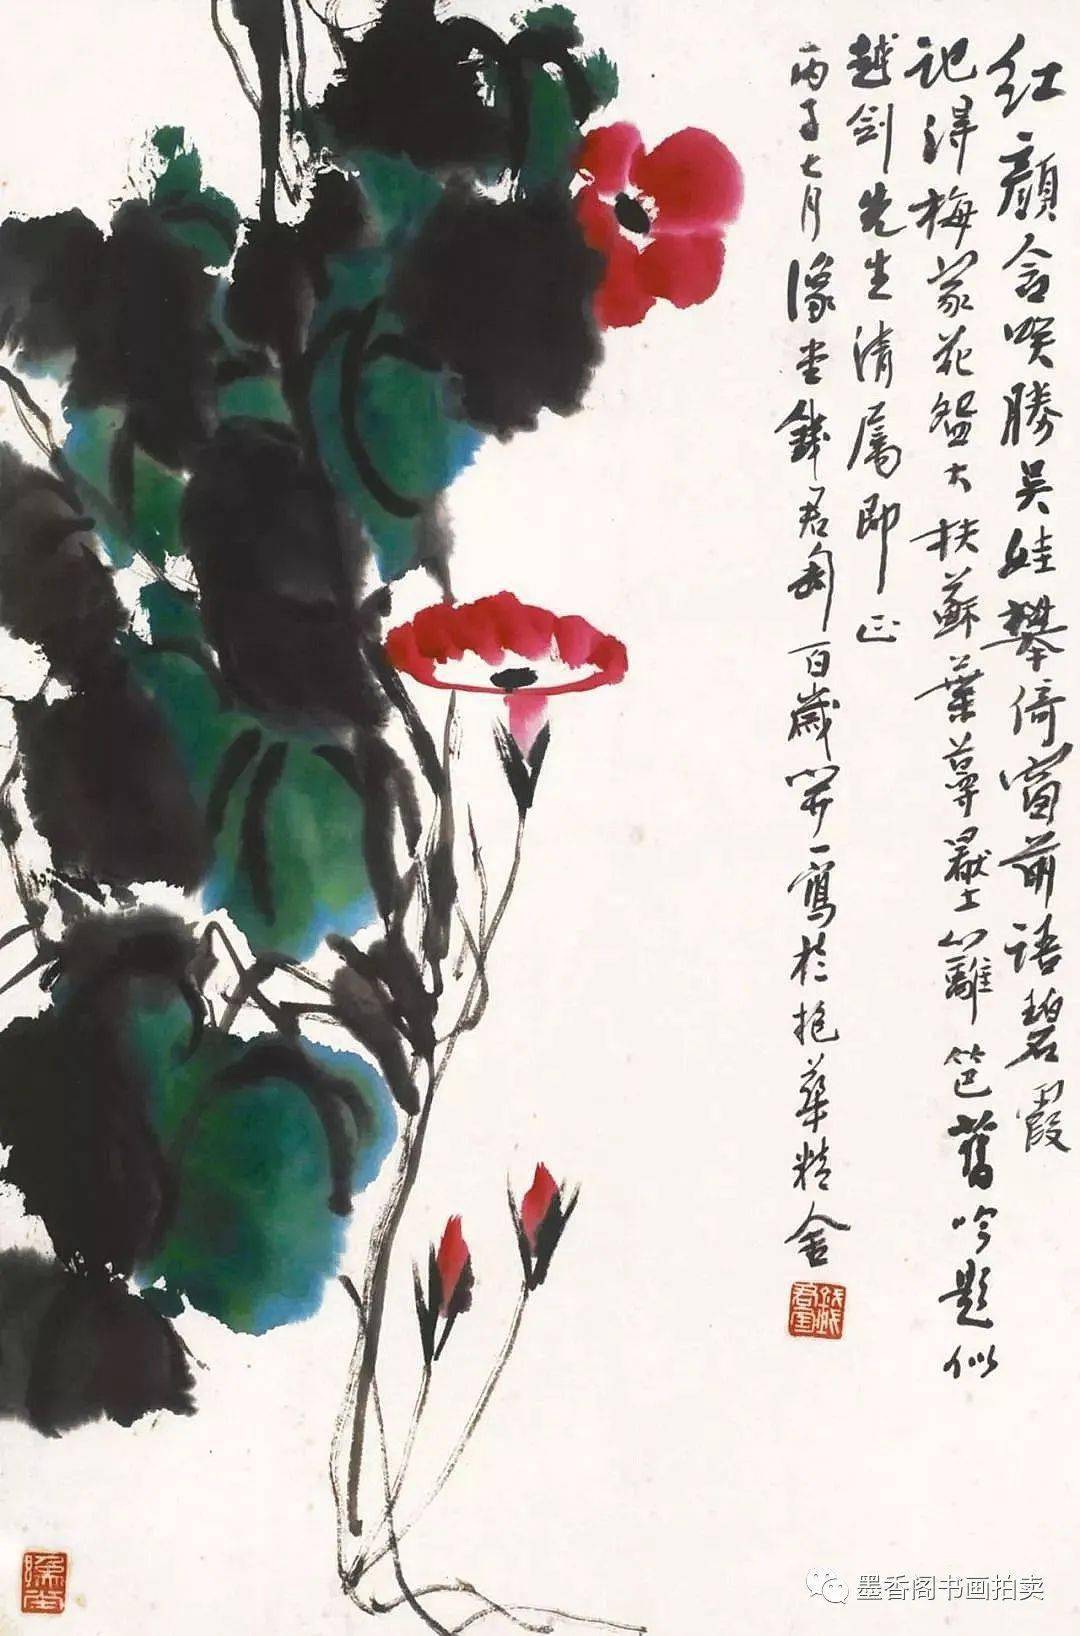 红顏含咲勝吴娃攀倚窗前語碧霞
記得梅家花盌大扶蘇葉蔓壓籬笆舊吟題似
越劍先生清屬即正
丙子七月豫堂錢君匋百歲開一寫於抱華精舍
豫堂
墨香阁书画拍卖